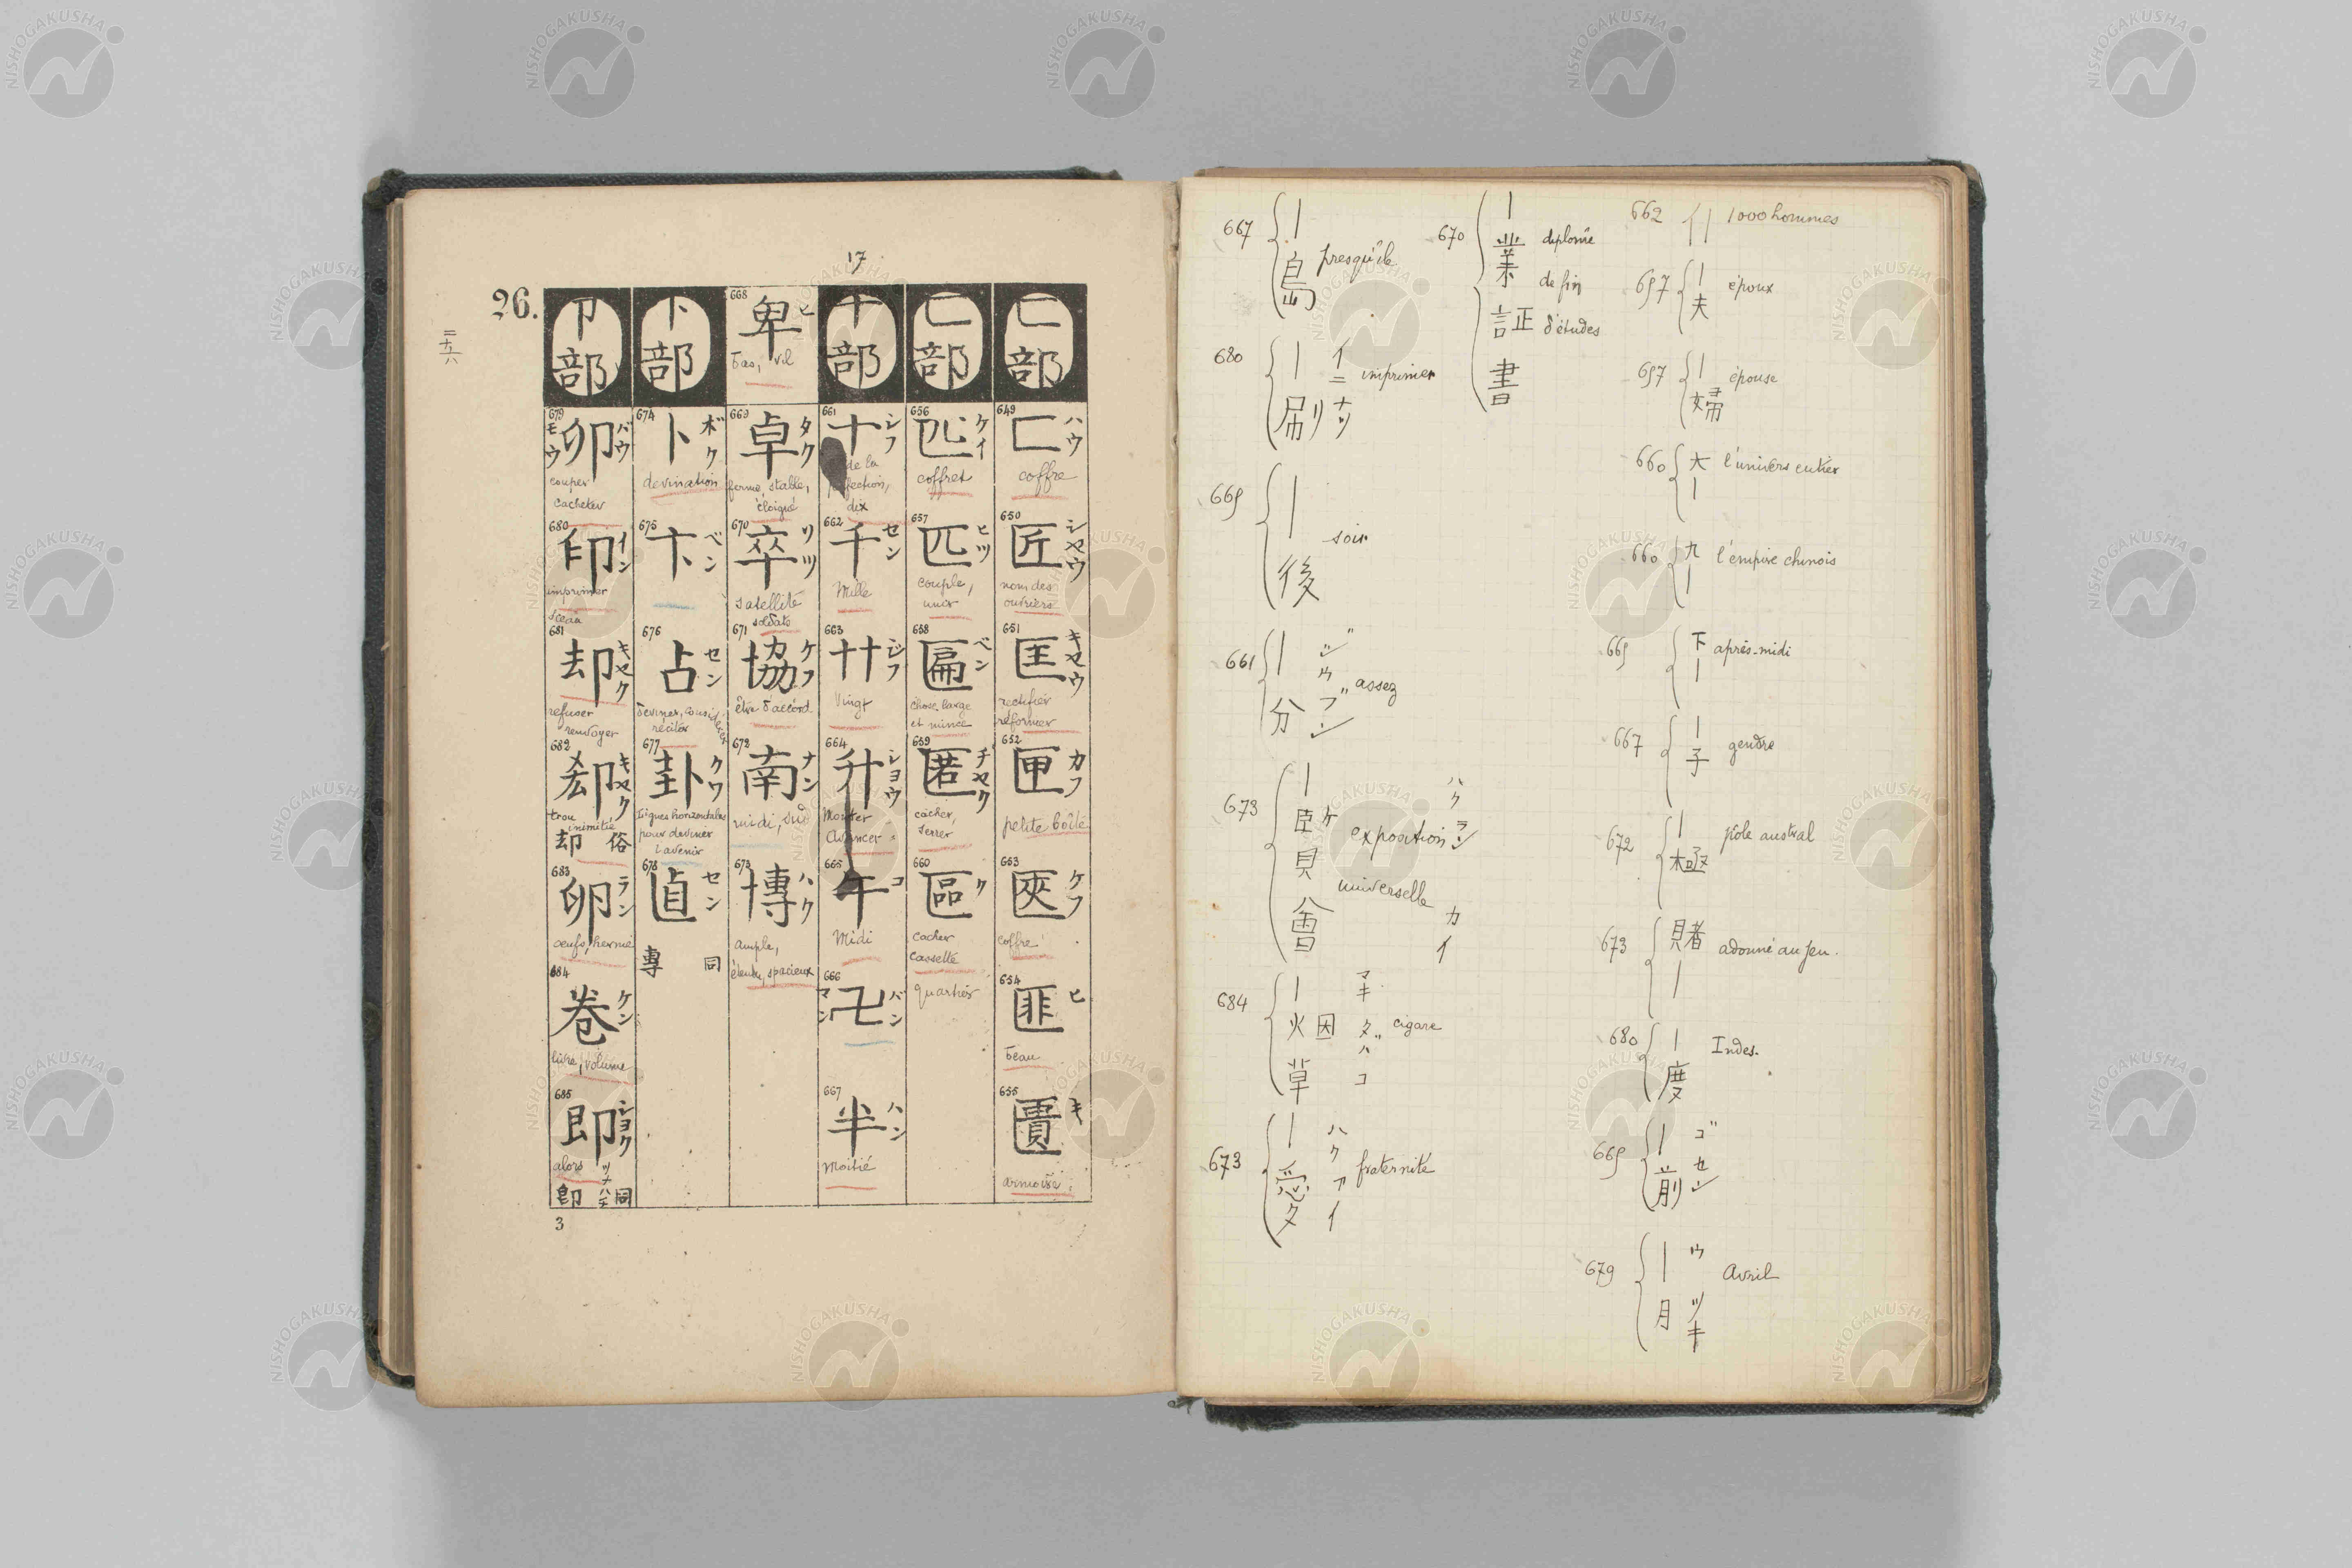 17
26.
二十六
匚部
649 匚 ハウ
coffre
650 匠 シヤウ
nom des
ouvriers
651 匡 キヤウ
rectifier
réformer
652 匣 カフ
petite boîte
653 匧 ケフ
coffre
654 匪 ヒ
beau
655 匱 キ
armoire
匸部
656 匸 ケイ
coffret
657 匹 ヒツ
couple,
unir
658 匾 ベン
chose large
et mince
659 匿 チヤク
cacher,
serrer
660 區 ク
cacher
cassette
quartier
十部
661 十 シフ
de la
perfection,
dix
662 千 セン
Mille
663 廿 ジフ
Vingt
664 升 シヨウ
Monter
Avancer
665 午 コ
Midi
666 卍 バン マン
667 半 ハン
Moitié
668 卑 ヒ
bas, vil
669 卓 タク
ferme, stable,
éloigné
670 卒 ソツ
satellite
soldats
671 協 ケフ
être d'accord
672 南 ナン
midi, sud
673 博 ハク
ample,
étendu, spacieux
卜部
674 卜 ボク
devination
675 卞 ベン
676 占 セン
deviner, considérer
réciter
677 卦 クワ
lignes horizontales
pour deviner
l'avenir
678 セン
專 同
卩部
679 卯 バウ モウ
couper
cacheter
680 印 イン
imprimer
sceau
681 却 キヤク
refuser
renvoyer
682 郄 キヤク
trou
inimitié
却 俗
683 卵 ラン
oeufs, hernie
684 卷 ケン
livre, volume
685 即 シヨク
alors
卽 ツナハチ 同
3
667 | 島 presqu'île
680 | 刷 imprimer
669 | 後 soir
661 | 分 ジウブン assez
673 | 覧 會 ハクラン カイ exposition
universelle
684 | 烟 草 マキ タバコ cigare
673 | 愛 ハクアイ fraternité
670 | 業 証 書 diplome
de fin
d'études
662 仟 1000 hommes
697 | 夫 époux
697 | 婦 épouse
660 大 | l'univers entier
660 九 | l'empire chinois
669 下 | après-midi
667 | 子 gendre
672 | 極 pôle austral
673 賭 | adonné au jeu.
680 | 度 Indes.
669 | 前 ゴセン
679 | 月 ウツキ Avril
NISHOGAKUSHA